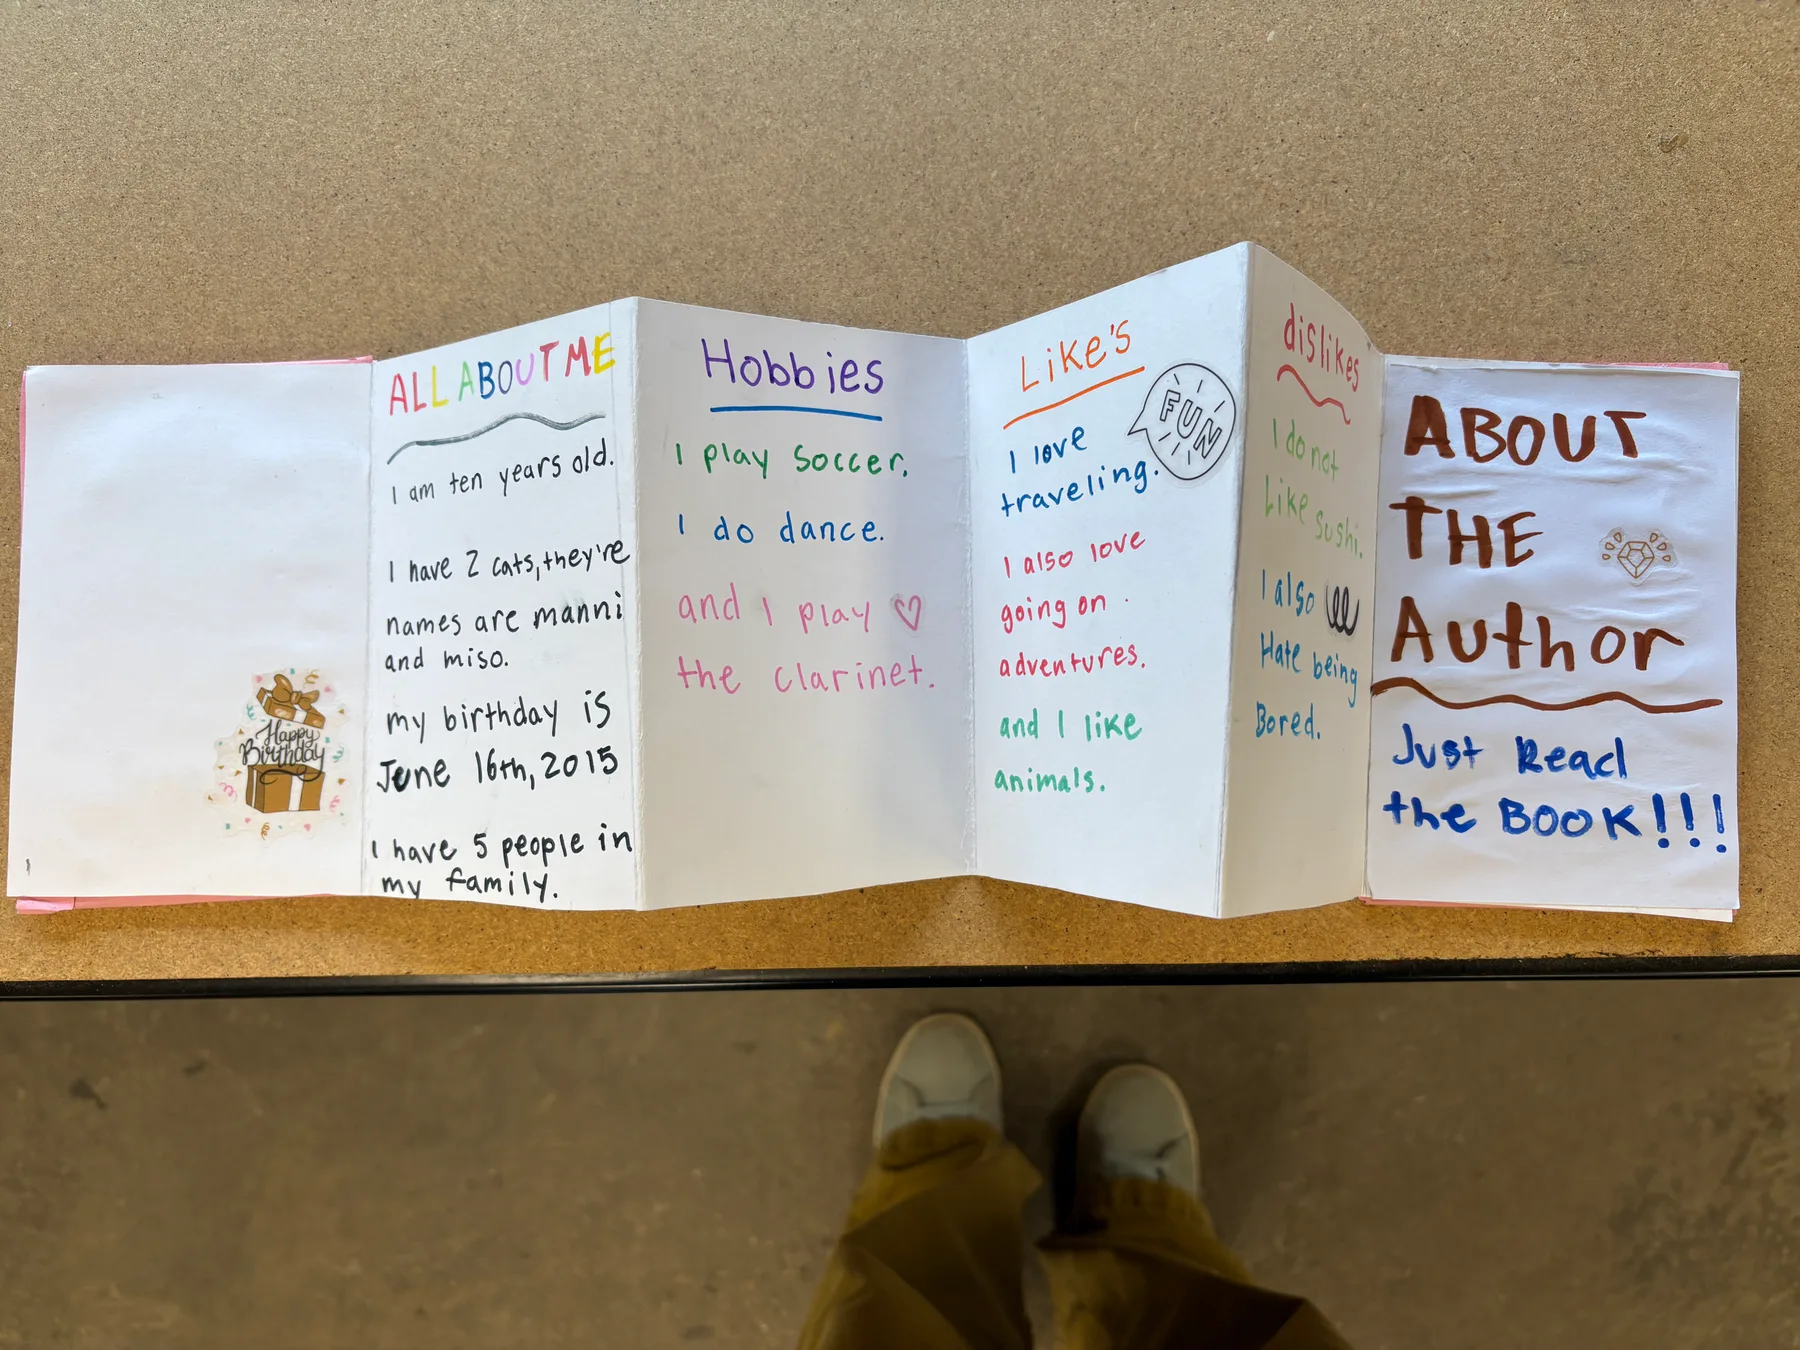 Happy
Birthday
ALL ABOUT ME
I am ten years old.
I have 2 cats, they're
names are manni
and miso.
my birthday is
June 16th, 2015
I have 5 people in
my family.
Hobbies
I play soccer.
I do dance.
and I play
the clarinet.
Like's
FUN
I love
traveling.
I also love
going on
adventures.
and I like
animals.
dislikes
I do not
Like sushi.
I also
Hate being
Bored.
ABOUT
THE
Author
Just Read
the BOOK!!!